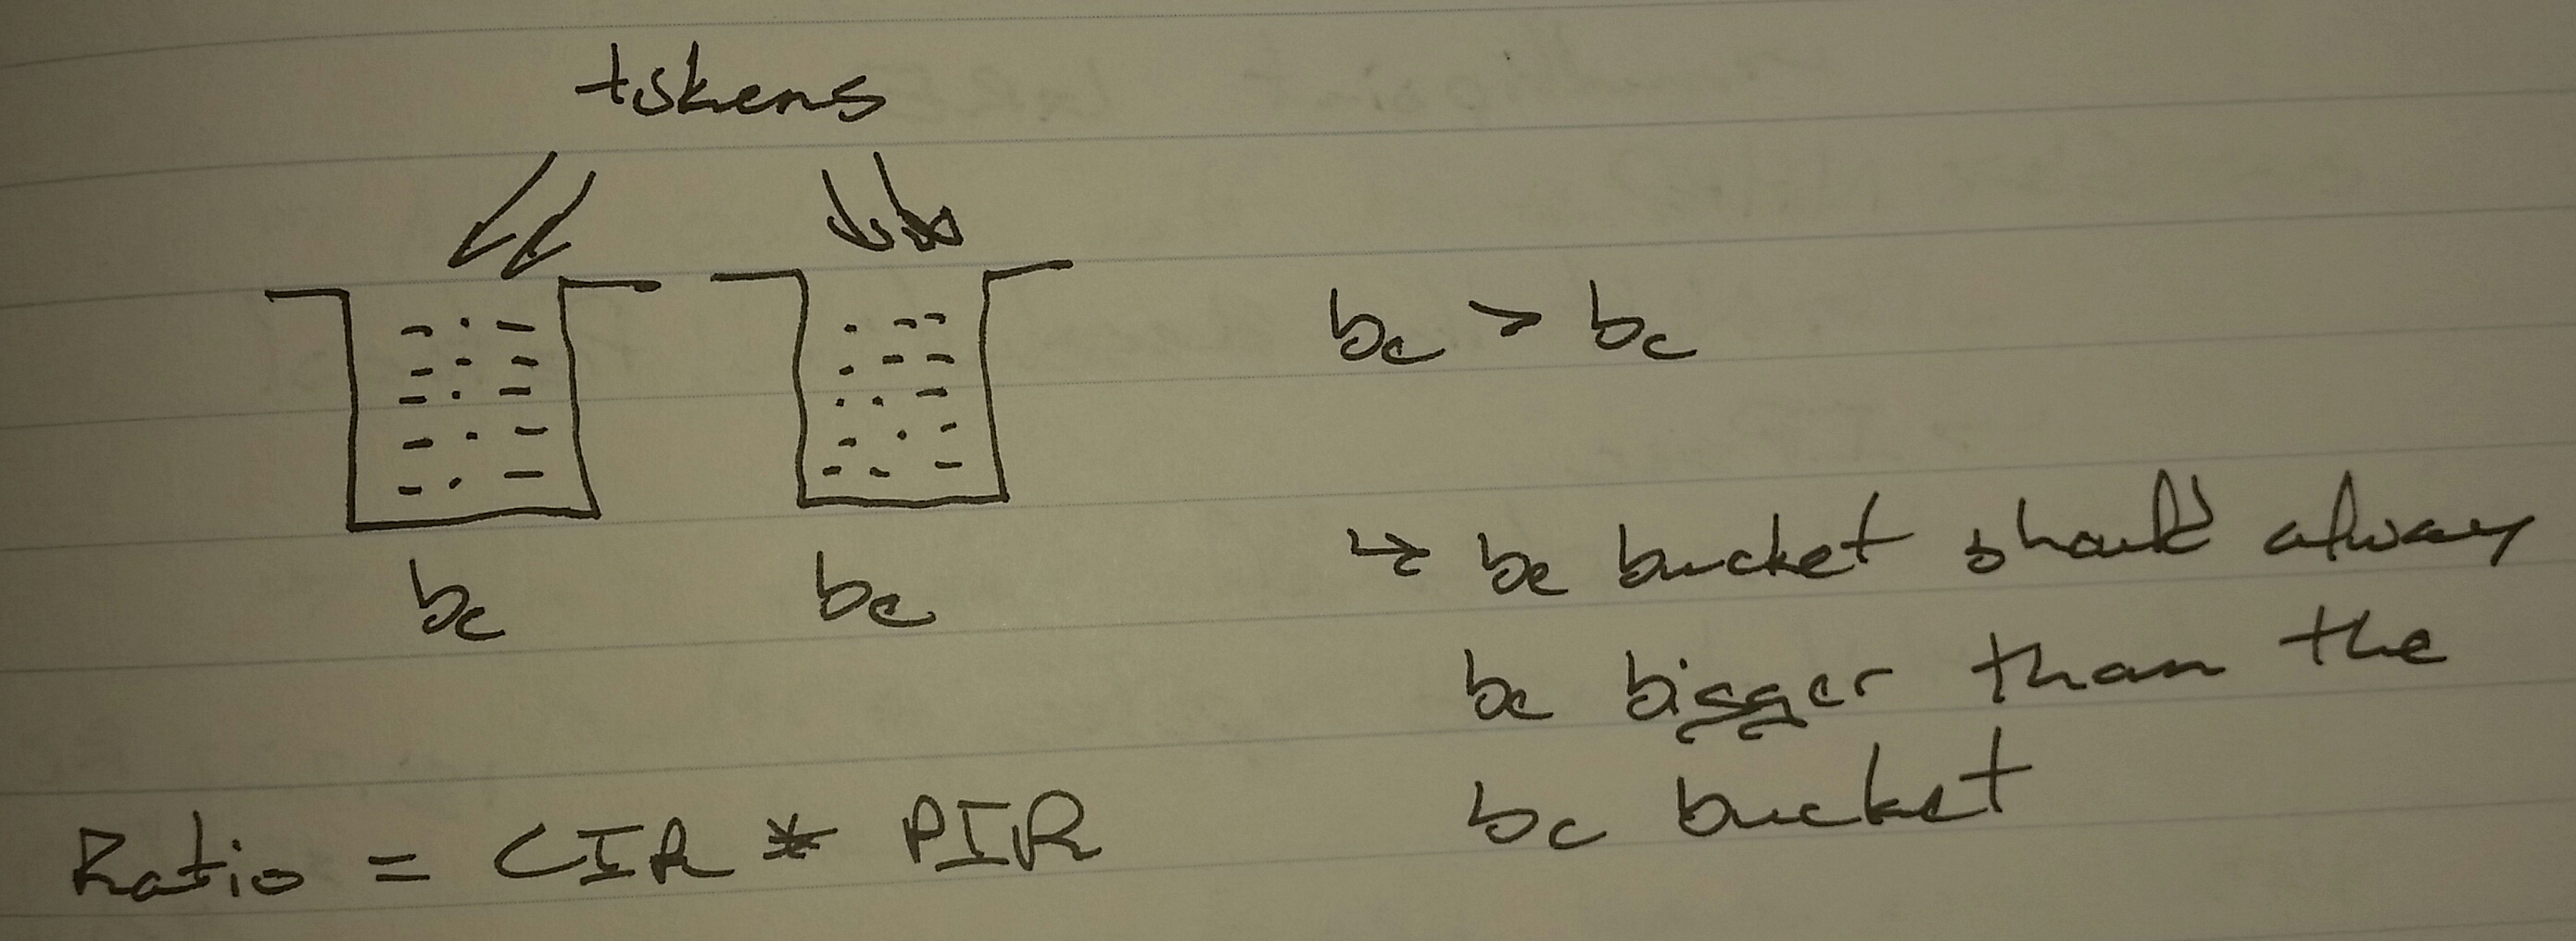 tokens
be > bc
bc be
→ be bucket should always
be bigger than the
bc bucket
Ratio = CIR * PIR